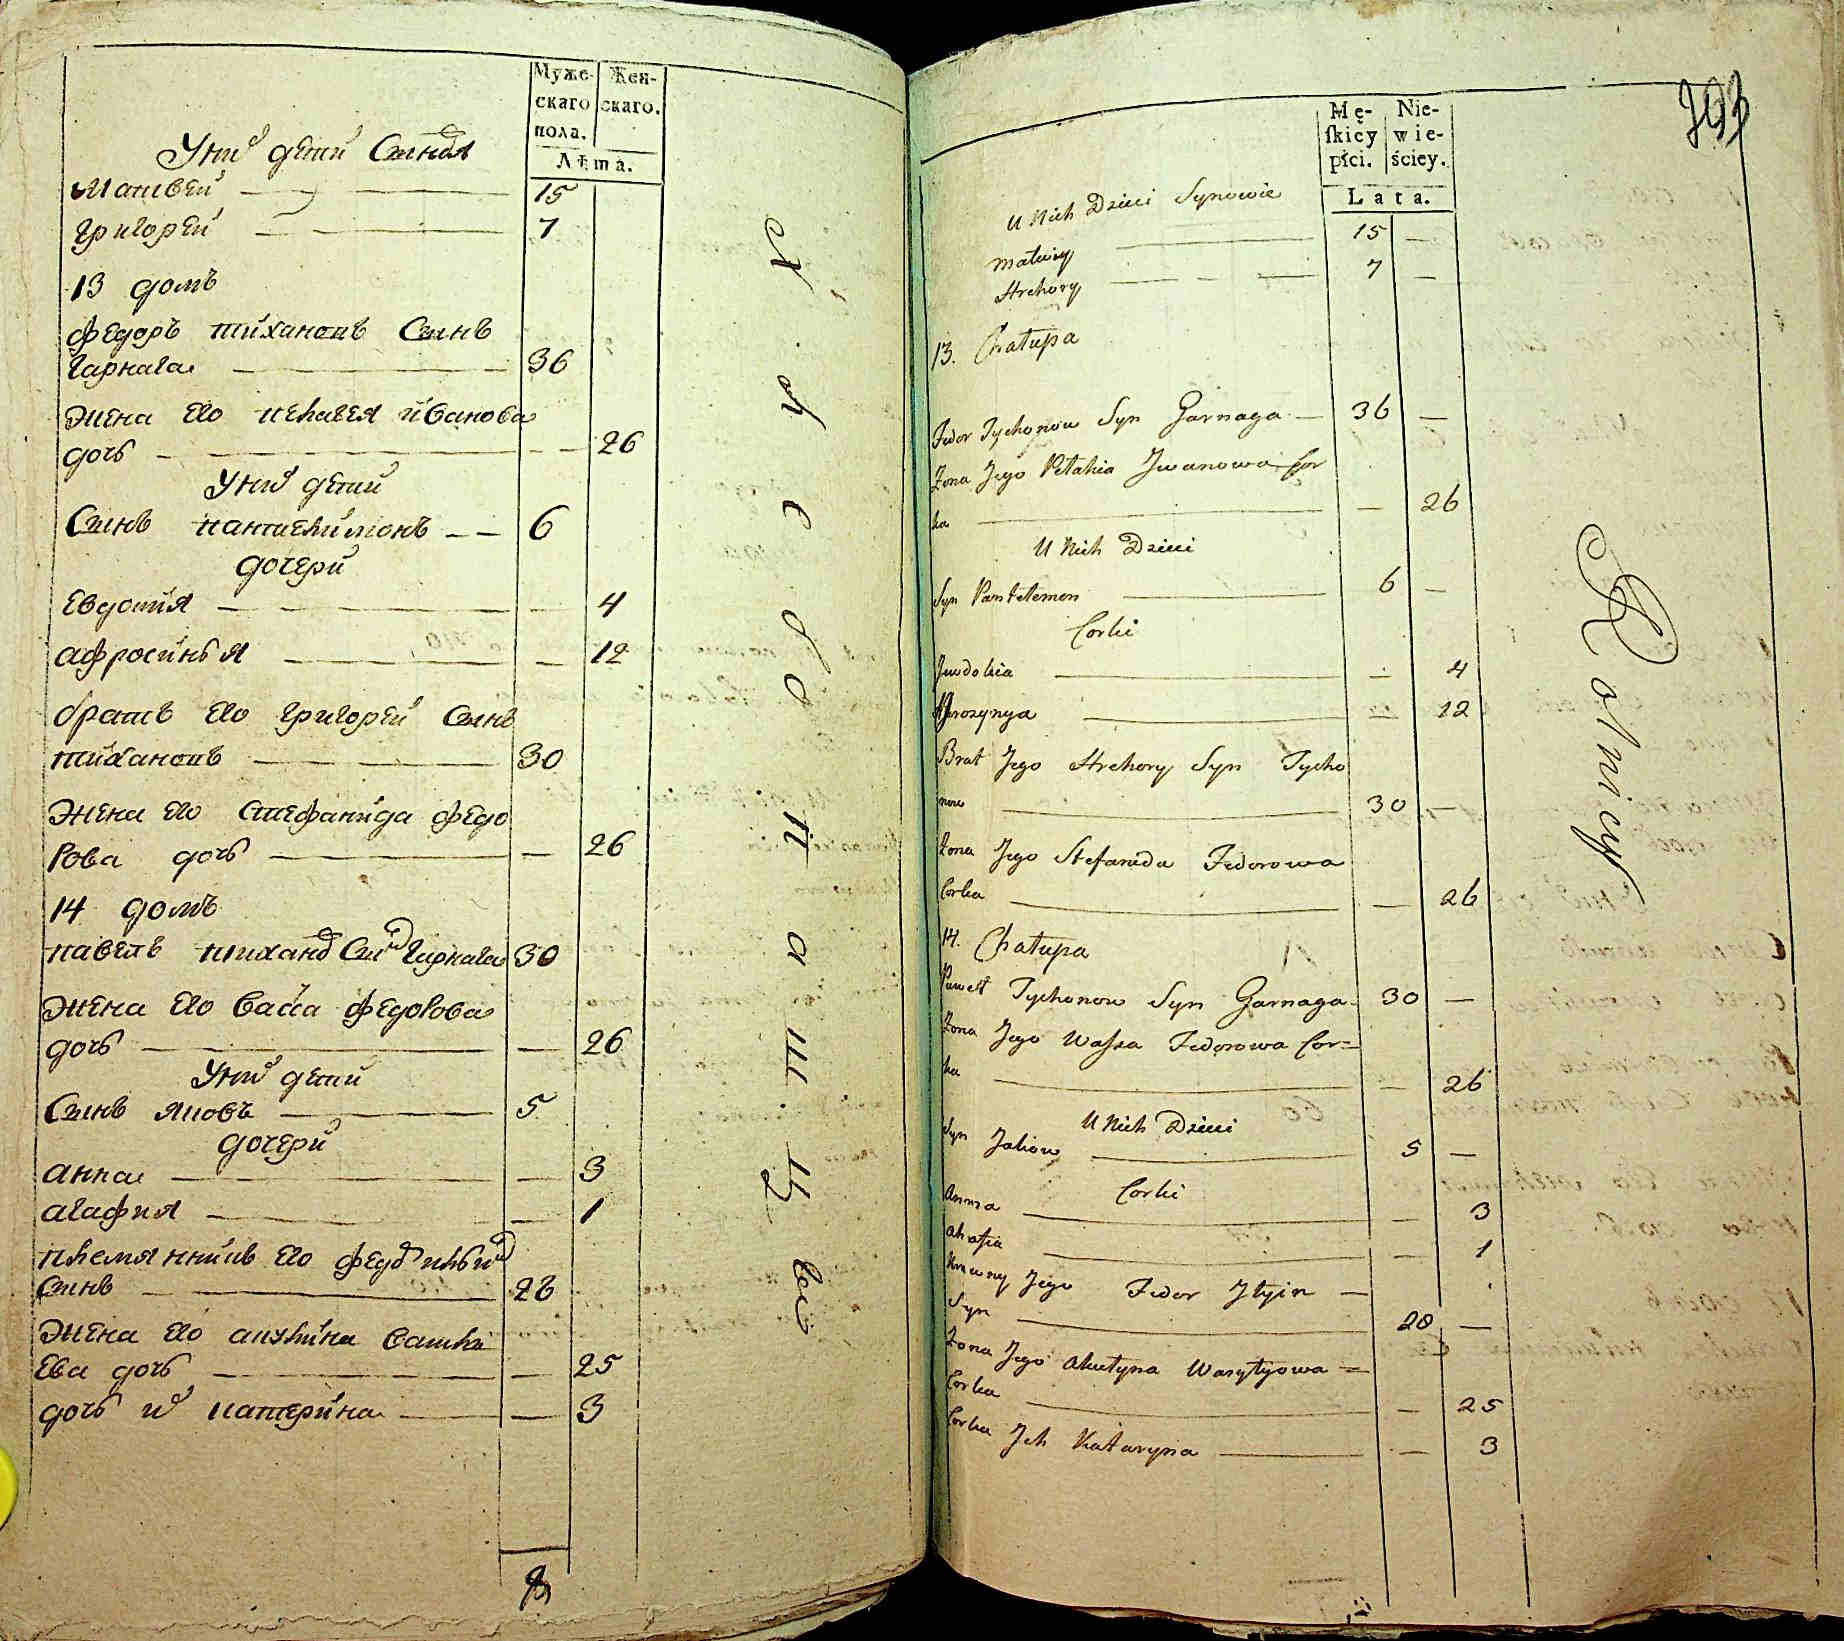 Муже-
скаго
пола.
Жен-
скаго.
Лѣта.
У них дети Сынов
Матвей — 15
Григорей — 7
13 домъ
Федоръ Тихановъ Сынъ
Гарнага — 36
Жена его Пелагея Иванова
дочь — — 26
У них дети
Сынъ Пантелимонъ — — 6
дочери
Евдокия — — 4
Афросинья — — 12
братъ его Григорей Сынъ
Тихановъ — 30
Жена его Стефанида Федо
рова дочь — — 26
14 домъ
Павелъ Тиханов Сын Гарнага 30
Жена его Васса Федорова
дочь — — 26
У них дети
Сынъ Яковъ — 5
дочери
Анна — — 3
Агафия — — 1
племянникъ его Федор Ильин
Сынъ — 28
Жена его Акулина Васили
ева дочь — — 25
дочь их Катерина — — 3
Хлебопашцы
Mę-
ſkiey
płci.
Nie-
wie-
ściey.
Lata.
U Nich Dzieci Synowie
Matwiy — 15 —
Hrehory — 7 —
13. Chałupa
Fedor Tychonow Syn Garnaga — 36 —
Żona Jego Pelahia Jwanowa Cor
ka — — 26
U Nich Dzieci
Syn Pantelemon — 6 —
Corki
Jewdokia — — 4
Afrozynya — — 12
Brat Jego Hrehory Syn Tycho
now — 30 —
Żona Jego Stefanida Fedorowa
Corka — — 26
14. Chałupa
Paweł Tychonow Syn Garnaga 30 —
Żona Jego Waſsa Fedorowa Cor=
ka — — 26
U Nich Dzieci
Syn Jakow — 5 —
Corki
Anna — — 3
Ahafia — — 1
Krewny Jego Fedor Jlyin —
Syn — 28 —
Żona Jego Akulyna Wasylyowa =
Corka — — 25
Corka Jch Kataryna — — 3
Rolnicy